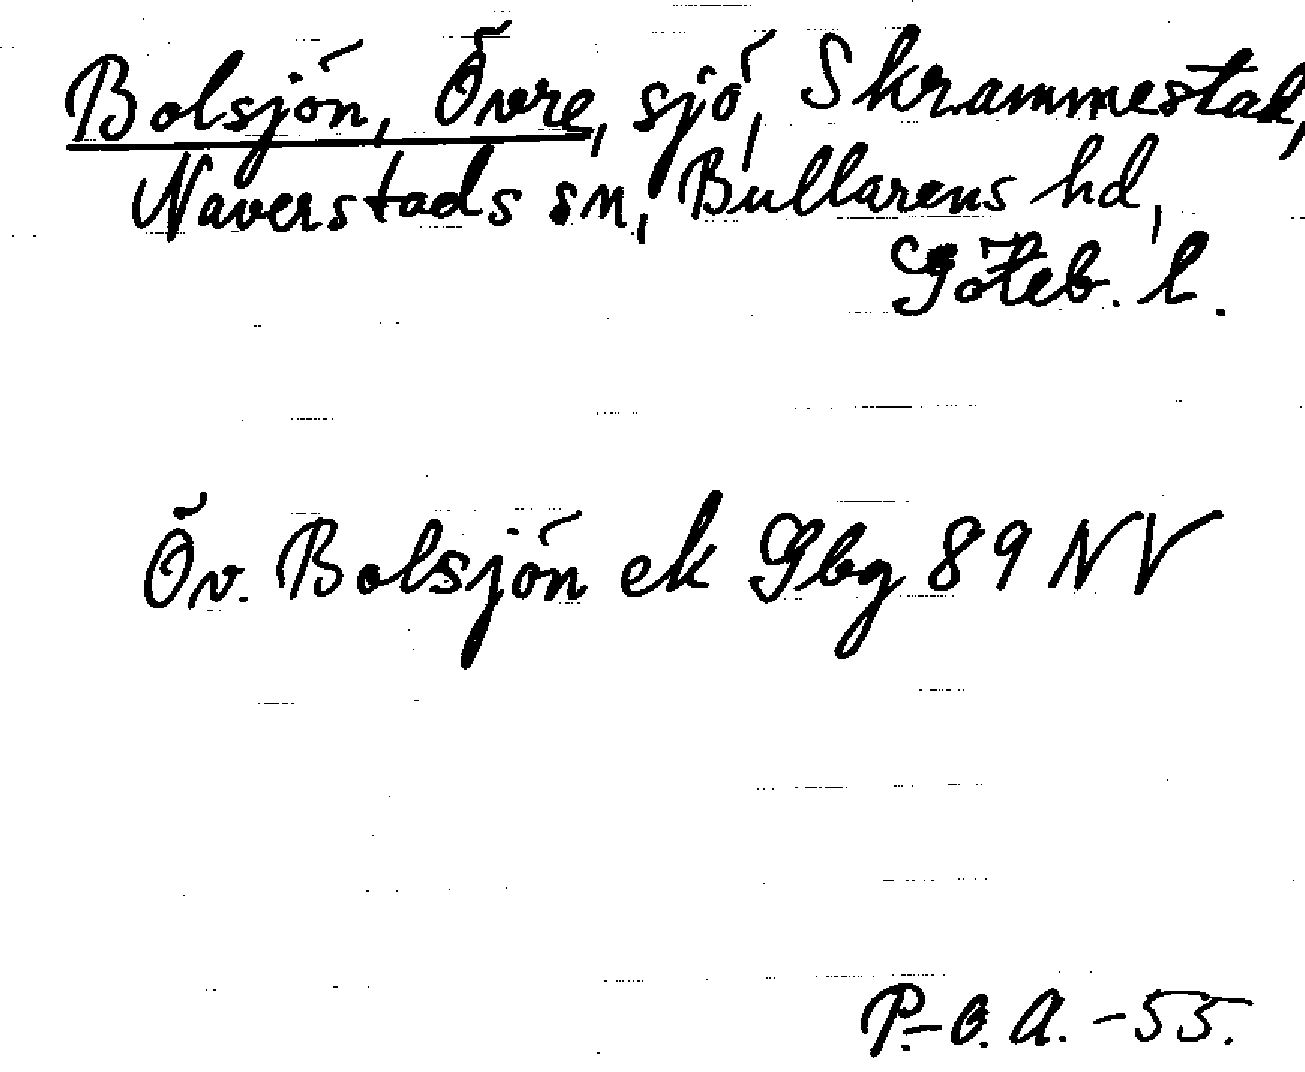 Bolsjön, Övre, sjö, Skrammestad,
Naverstads sn, Bullarens hd,
Göteb. l.
Öv. Bolsjön ek Gbg 89 NV
P.-O. A. -55.